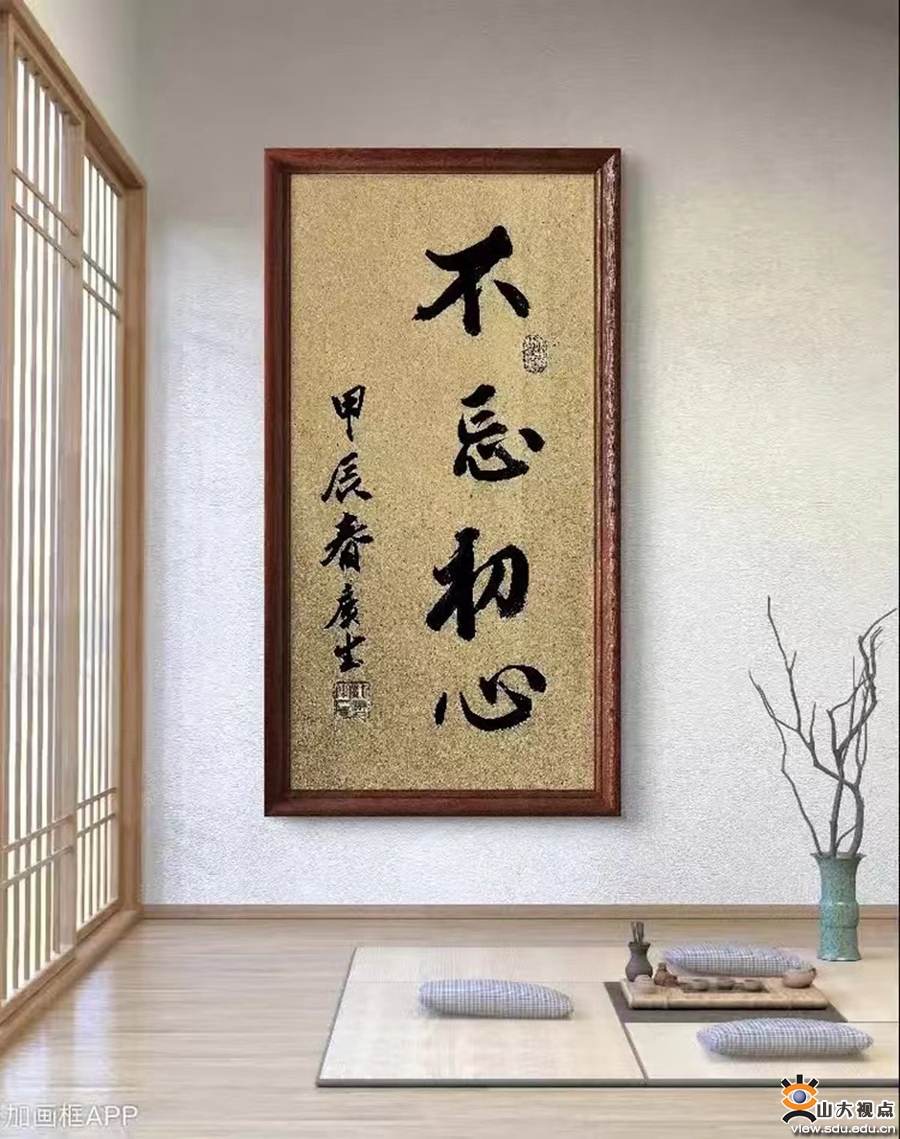 不忘初心
甲辰春廣生
加画框APP
山大视点
view.sdu.edu.cn